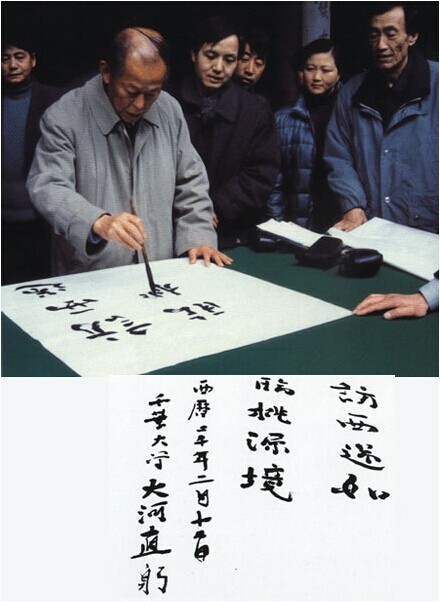 訪西递如
臨桃源境
西歷二千年二月十日
千葉大学 大河直躬